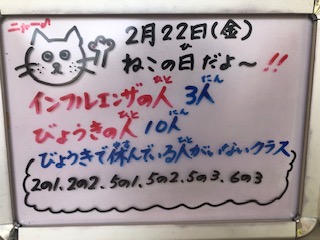 ニャー♪
2月22日(金)
ねこの日だよ〜!!
インフルエンザの人 3人
びょうきの人 10人
びょうきで休んでいる人がいないクラス
2の1、2の2、5の1、5の2、5の3、6の3